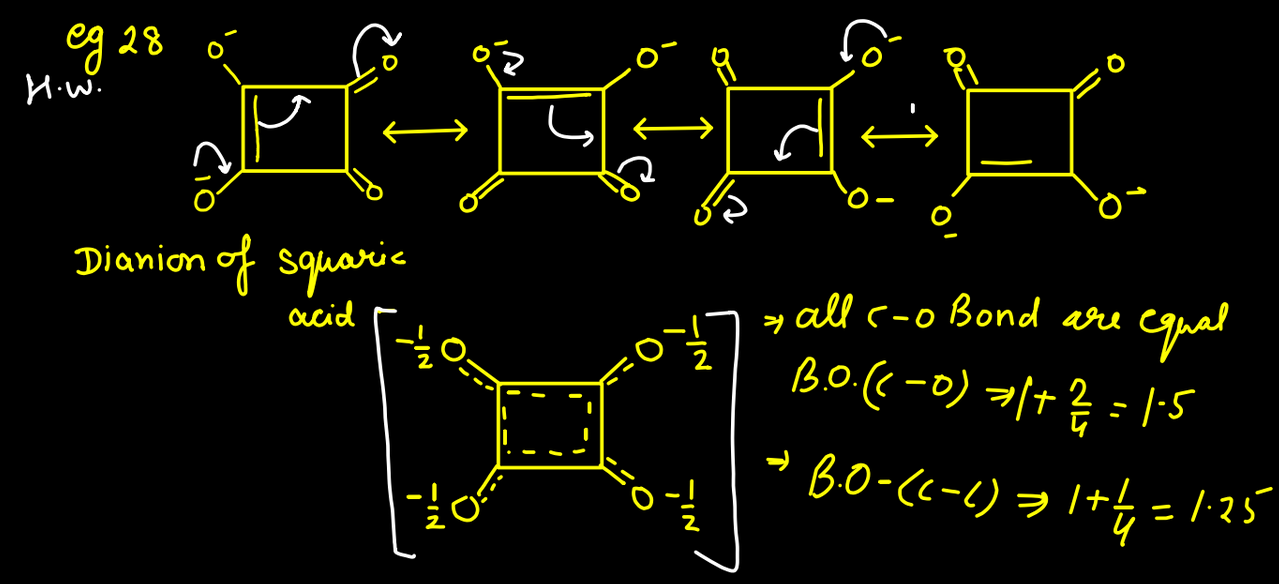 eg 28
H.w.
O⁻ O O⁻ O⁻ O O⁻ O O
O⁻ O O O O O- O⁻ O⁻
Dianion of squaric
acid
-1/2 O O -1/2
-1/2 O O -1/2
⇒ all C-O Bond are equal
B.O.(C-O) ⇒ 1+ 2/4 = 1.5
⇒ B.O-(C-C) ⇒ 1+1/4 = 1.25